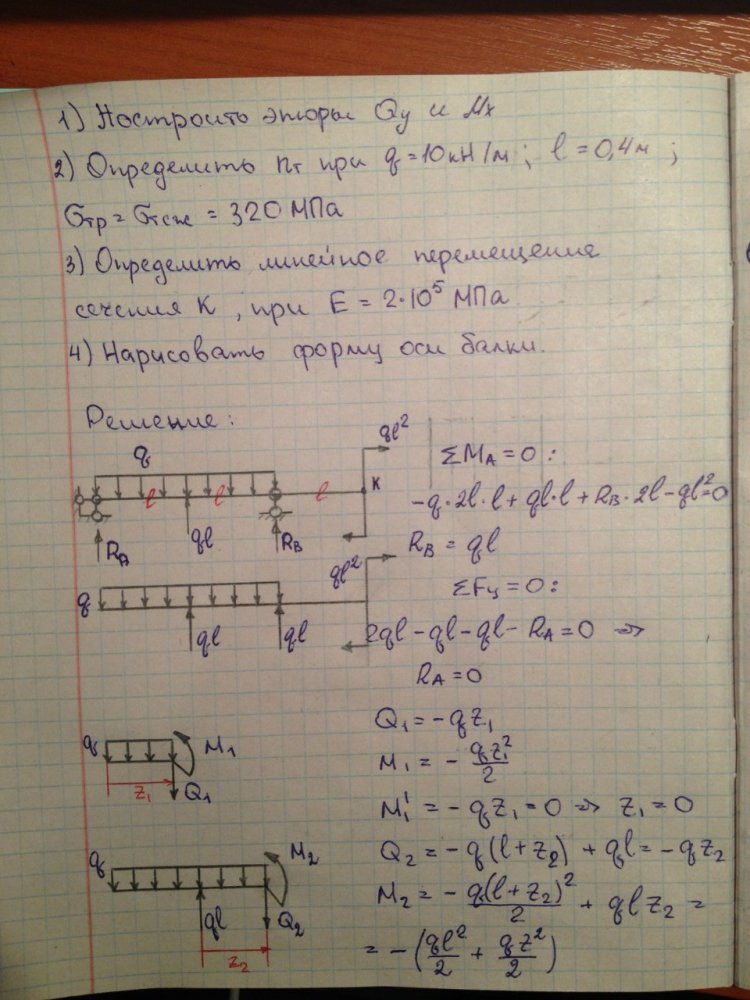 1) Построить эпюры Qy и Mx
2) Определить nт при q = 10 кН/м ; l = 0,4 м ;
σтр = σтсж = 320 МПа
3) Определить линейное перемещение
сечения K , при E = 2·10⁵ МПа
4) Нарисовать форму оси балки.
Решение:
ql²
q
l l l K
RA ql RB
ΣMA = 0 :
-q·2l·l + ql·l + RB·2l - ql² = 0
RB = ql
ql²
q
ql ql
ΣFy = 0 :
2ql - ql - ql - RA = 0 ⇒
RA = 0
q M1
z1 Q1
Q1 = - qz1
M1 = - qz1²/2
M1' = - qz1 = 0 ⇒ z1 = 0
q M2
ql Q2
z2
Q2 = - q(l + z2) + ql = - qz2
M2 = - q(l + z2)²/2 + qlz2 =
= - (ql²/2 + qz²/2)